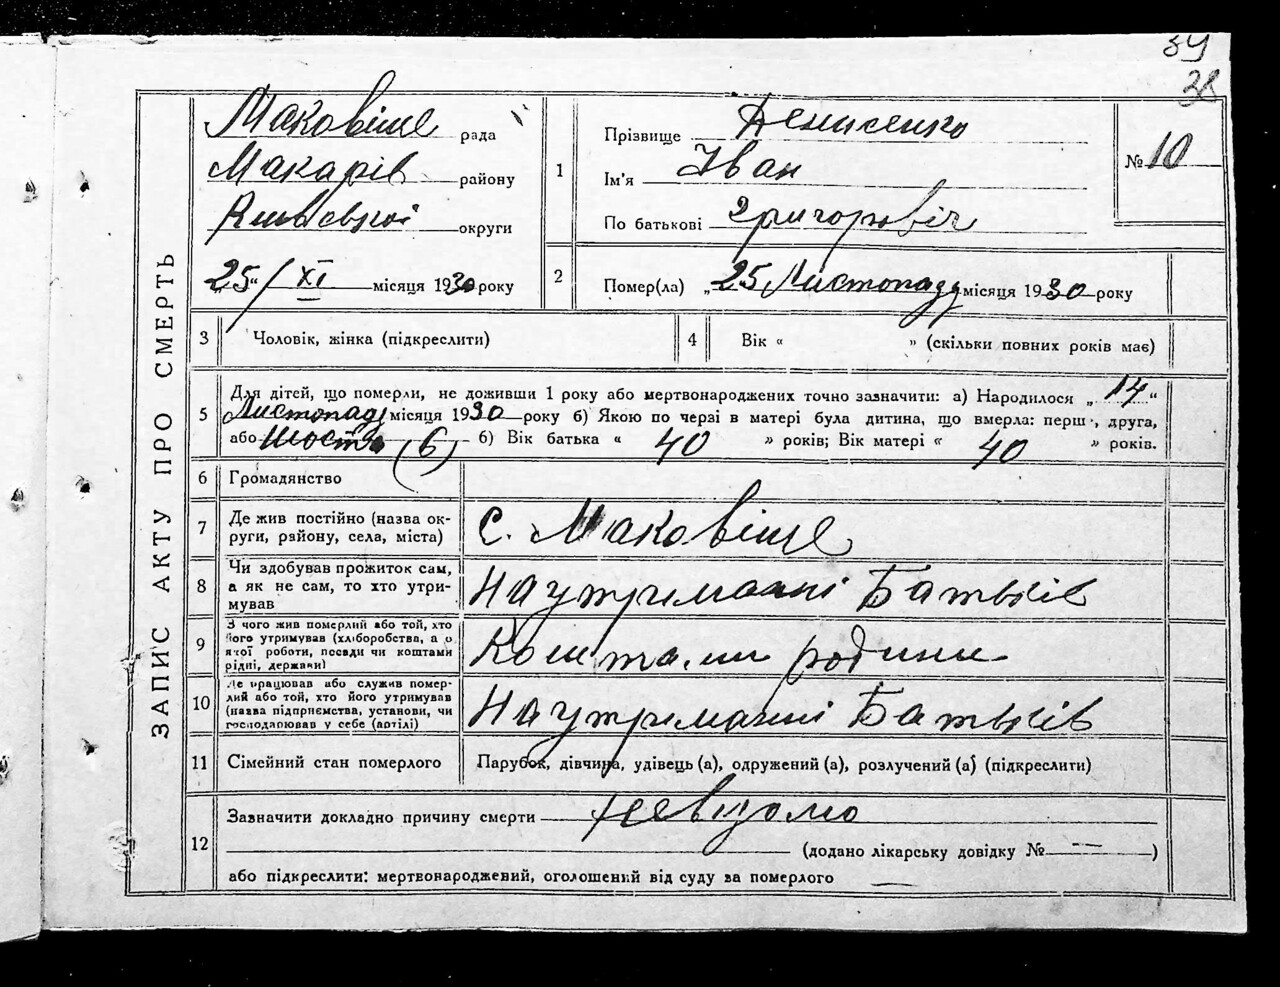 39
38
ЗАПИС АКТУ ПРО СМЕРТЬ
Маковіще рада
Макарів району
округи
„25“/XI місяця 1930 року
1
Прізвище Денисенко
Ім'я Іван
По батькові Григоровіч
№ 10
2
Помер(ла) „25 Листопаду місяця 1930 року
3 Чоловік, жінка (підкреслити)
4 Вік « » (скільки повних років має)
5
Для дітей, що померли, не доживши 1 року або мертвонароджених точно зазначити: а) Народилося „14“
Листопаду місяця 1930 року б) Якою по черзі в матері була дитина, що вмерла: перш , друга,
або шоста (6) б) Вік батька « 40 » років; Вік матері « 40 » років.
6 Громадянство
7
Де жив постійно (назва ок-
руги, району, села, міста)
с. Маковіще
8
Чи здобував прожиток сам,
а як не сам, то хто утри-
мував
На утриманні Батьків
9
З чого жив померлий або той, хто
його утримував (хліборобства, а о
якої роботи, посади чи коштами
рідні, держави)
Коштами родини
10
Де працював або служив помер-
лий або той, хто його утримував
(назва підприємства, установи, чи
господарював у себе (артілі)
На утриманні Батьків
11 Сімейний стан померлого
Парубок, дівчина, удівець (а), одружений (а), розлучений (а) (підкреслити)
12
Зазначити докладно причину смерти невідомо
(додано лікарську довідку № — )
або підкреслити: мертвонароджений, оголошений від суду за померлого —